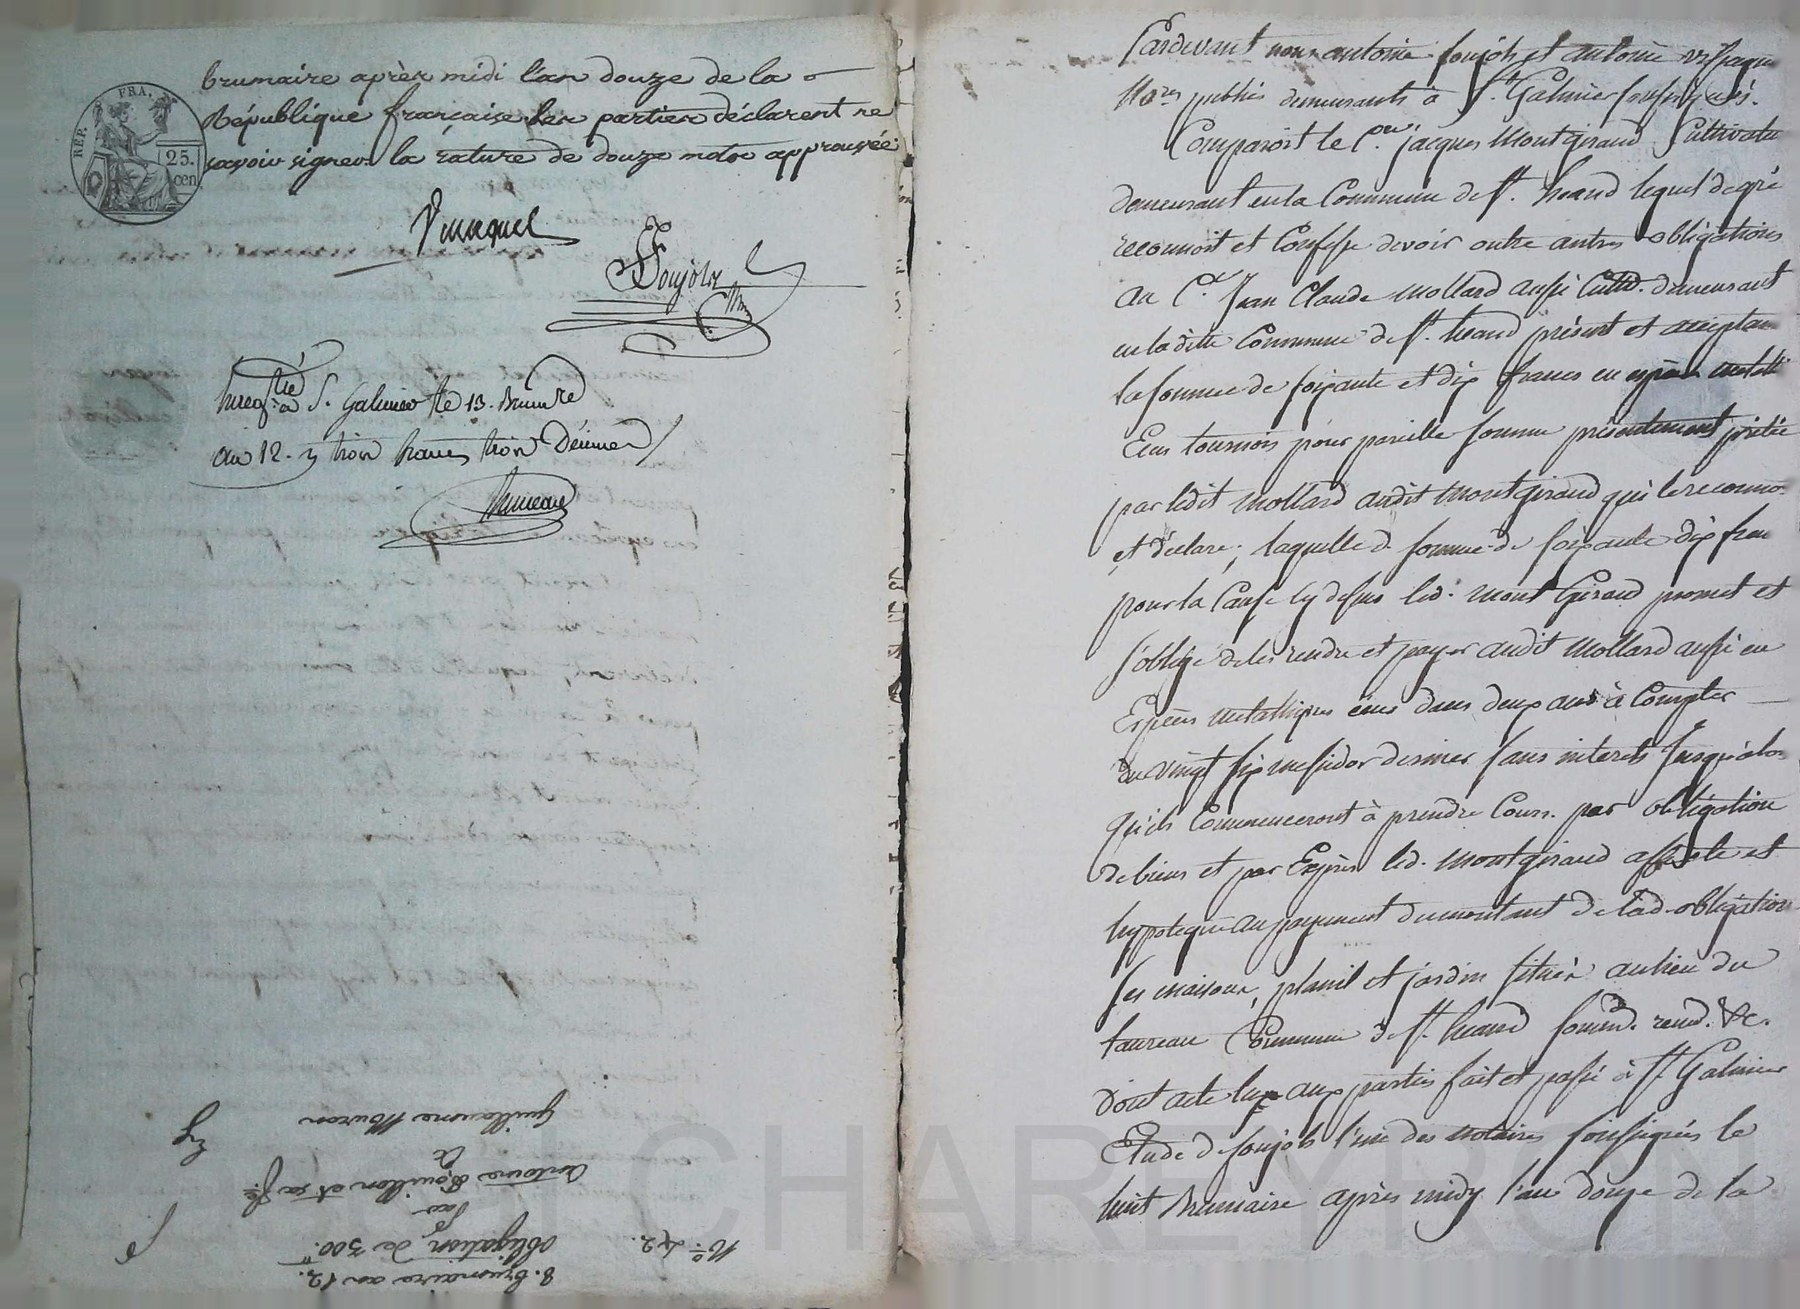 brumaire après midi l'an douze de la
République française les parties déclarent ne
savoir signer. la rature de douze mots approuvée
REP. FRA.
25.
cen
Foujols
Enreg.tré à S. Galmier le 13. Brum.re
an 12. trois francs trois Décimes
8. brumaire an 12.
N.o 42.
obligation de 300.
Par
Antoine Bouillon et sa f.e
à
Guillaume Mouron
Pardevant nous antoine foujols et antoine
No.res publics demeurants à S.t Galmier soussignés.
Comparoit le C.en jacques Montgiraud Cultivateur
demeurant en la Commune de S.t heand lequel de gré
reconnoit et Confesse devoir outre autres obligations
au C.en Jean Claude Mollard aussi Cultiv. demeurant
en la ditte Commune de S.t heand présent et acceptant
la somme de soixante et dix francs en espèces metalli
Ecus tournois pour pareille somme présentement prêtée
par ledit Mollard audit Montgiraud qui le reconnoit
et déclare; laquelle d. somme de soixante dix fran
pour la Cause Cy dessus led. MontGiraud promet et
s'oblige de les rendre et payer audit Mollard aussi en
Espèces metalliques écus dans deux ans à Compter
du vingt six messidor dernier sans interets jusqu'alors
qu'ils Commenceront à prendre Cours. par obligation
de biens et par Exprès led. Montgiraud affecte et
hypotèque au payement du montant de lad. obligation
ses maisons, plassil et jardin situés au lieu du
taureau Commune de S.t heand soumd. renod. &c.
Dont acte lu aux parties fait et passé à S.t Galmier
Etude de foujols l'un des notaires soussignés le
huit Brumaire après midy l'an douze de la
CHAREYRON